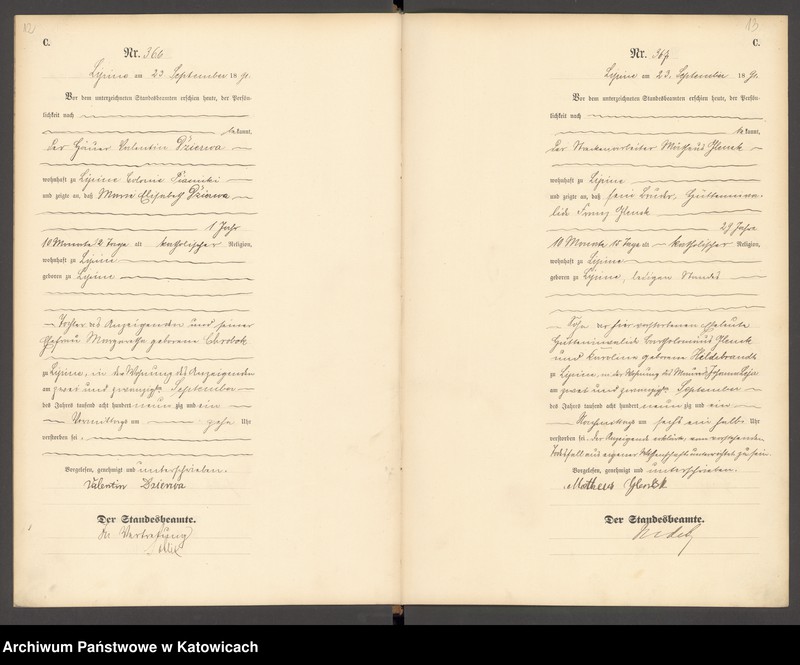 12
C.
Nr. 366
Lipine am 23. September 1891
Vor dem unterzeichneten Standesbeamten erschien heute, der Persön-
lichkeit nach
bekannt,
der Häuer Valentin Dzienwa
wohnhaft zu Lipine Colonie Piasniki
und zeigte an, daß Marie Elisabeth Dzienwa
1 Jahr
10 Monate 12 Tage alt katholischer Religion,
wohnhaft zu Lipine
geboren zu Lipine
Tochter des Anzeigenden und seiner
Ehefrau Margarethe geborene Chrobok
zu Lipine, in der Wohnung des Anzeigenden
am zwei und zwanzigsten September
des Jahres tausend acht hundert neunzig und ein
Vormittags um zehn Uhr
verstorben sei.
Vorgelesen, genehmigt und unterschrieben.
Valentin Dzienwa
Der Standesbeamte.
In Vertretung
13
C.
Nr. 367
Lipine am 23. September 1891
Vor dem unterzeichneten Standesbeamten erschien heute, der Persön-
lichkeit nach
bekannt,
der Matheus Glensk
wohnhaft zu Lipine
und zeigte an, daß sein Bruder, Hütteninva-
lide Franz Glensk
29 Jahre
10 Monate 15 Tage alt katholischer Religion,
wohnhaft zu Lipine
geboren zu Lipine, ledigen Standes
Sohn der hier verstorbenen Eheleute
Hütteninvalide Bartholomäus Glensk
und Karoline geborene Heldebrandt
zu Lipine, in der Wohnung des Johann
am zwei und zwanzigsten September
des Jahres tausend acht hundert neunzig und ein
Nachmittags um sechs ein halb Uhr
verstorben sei. Der Anzeigende erklärte, vom vorstehenden
Todesfall aus eigener Wissenschaft unterrichtet zu sein.
Vorgelesen, genehmigt und unterschrieben.
Matheus Glensk
Der Standesbeamte.
Archiwum Państwowe w Katowicach